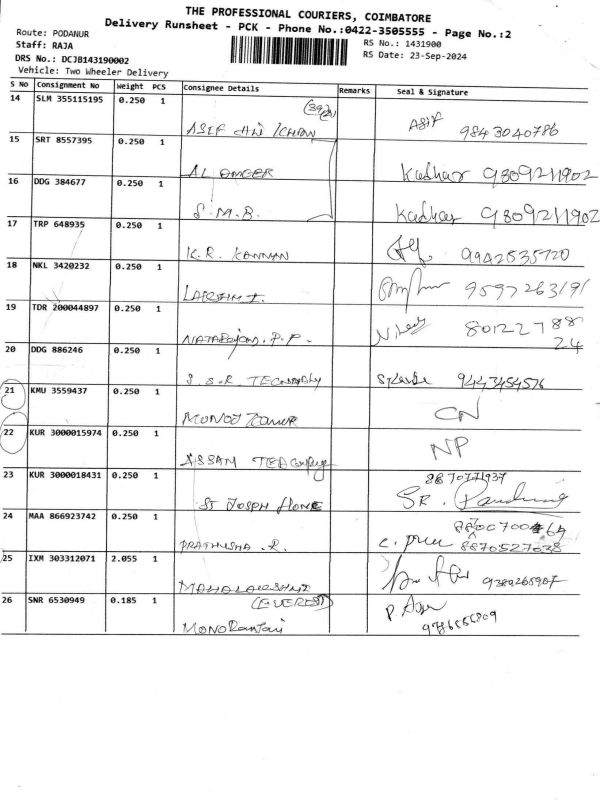 THE PROFESSIONAL COURIERS, COIMBATORE
Delivery Runsheet - PCK - Phone No.:0422-3505555 - Page No.:2
Route: PODANUR
RS No.: 1431900
Staff: RAJA
RS Date: 23-Sep-2024
DRS No.: DCJB143190002
Vehicle: Two Wheeler Delivery
S No Consignment No Weight PCS Consignee Details Remarks Seal & Signature
14 SLM 355115195 0.250 1
ASIF ASIF 9843040786
15 SRT 8557395 0.250 1
AL Kadhar 9809211902
16 DDG 384677 0.250 1
S.M.B. Kadhar 9809211902
17 TRP 648935 0.250 1
K.R. KANNAN 9942535720
18 NKL 3420232 0.250 1
LAKSHMI 9597263191
19 TDR 200044897 0.250 1
NATARAJAN. P.P. 80122788
24
20 DDG 886246 0.250 1
S.S.R. 9443454576
21 KMU 3559437 0.250 1
MONOJ KUMAR CN
22 KUR 3000015974 0.250 1
ASSAM TEA NP
23 KUR 3000018431 0.250 1
ST JOSPH HOME SR.
24 MAA 866923742 0.250 1
PRATHUSHA .R. 8870527638
25 IXM 303312071 2.055 1
MAHALAKSHMI
26 SNR 6530949 0.185 1
(EVEREST)
MONORanjani